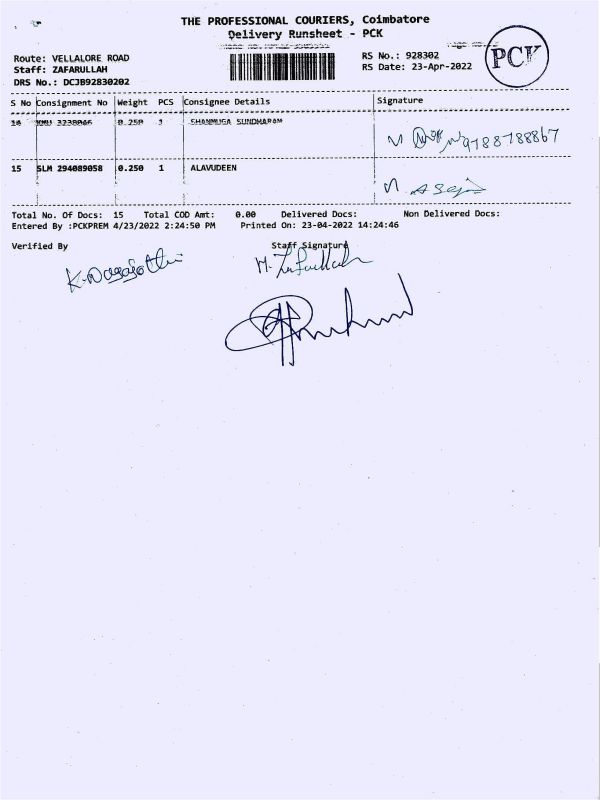 THE PROFESSIONAL COURIERS, Coimbatore
Delivery Runsheet - PCK
PCK
Route: VELLALORE ROAD
RS No.: 928302
Staff: ZAFARULLAH
RS Date: 23-Apr-2022
DRS No.: DCJB92830202
S No Consignment No Weight PCS Consignee Details Signature
14 3238046 0.250 1 SHANMUGA SUNDHARAM
9788788867
15 SLM 294089058 0.250 1 ALAVUDEEN
Total No. Of Docs: 15 Total COD Amt: 0.00 Delivered Docs: Non Delivered Docs:
Entered By :PCKPREM 4/23/2022 2:24:50 PM Printed On: 23-04-2022 14:24:46
Verified By Staff Signature